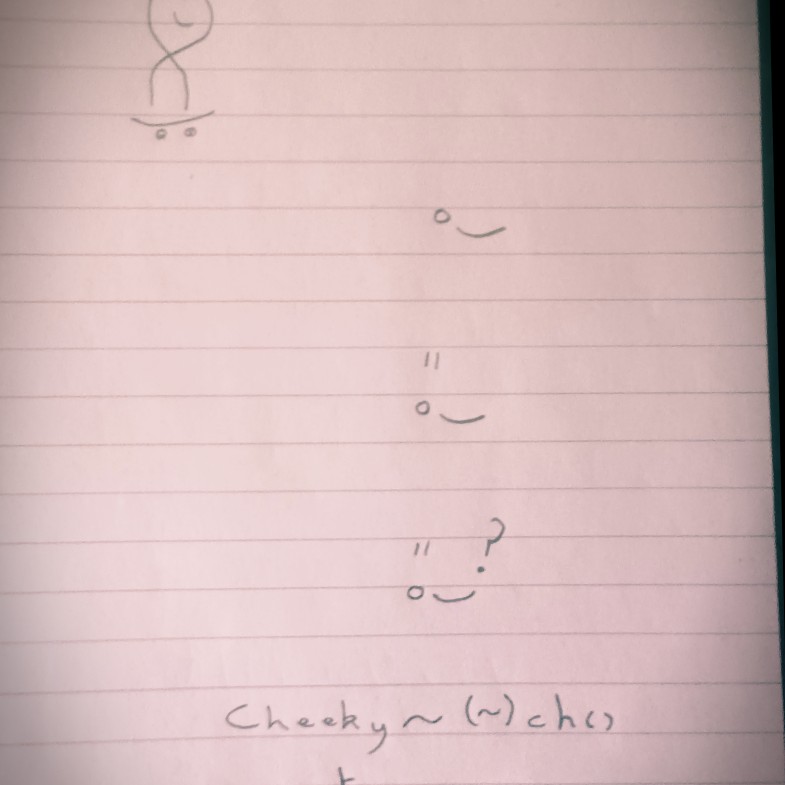 ?
Cheeky ~ (~) ch()
t